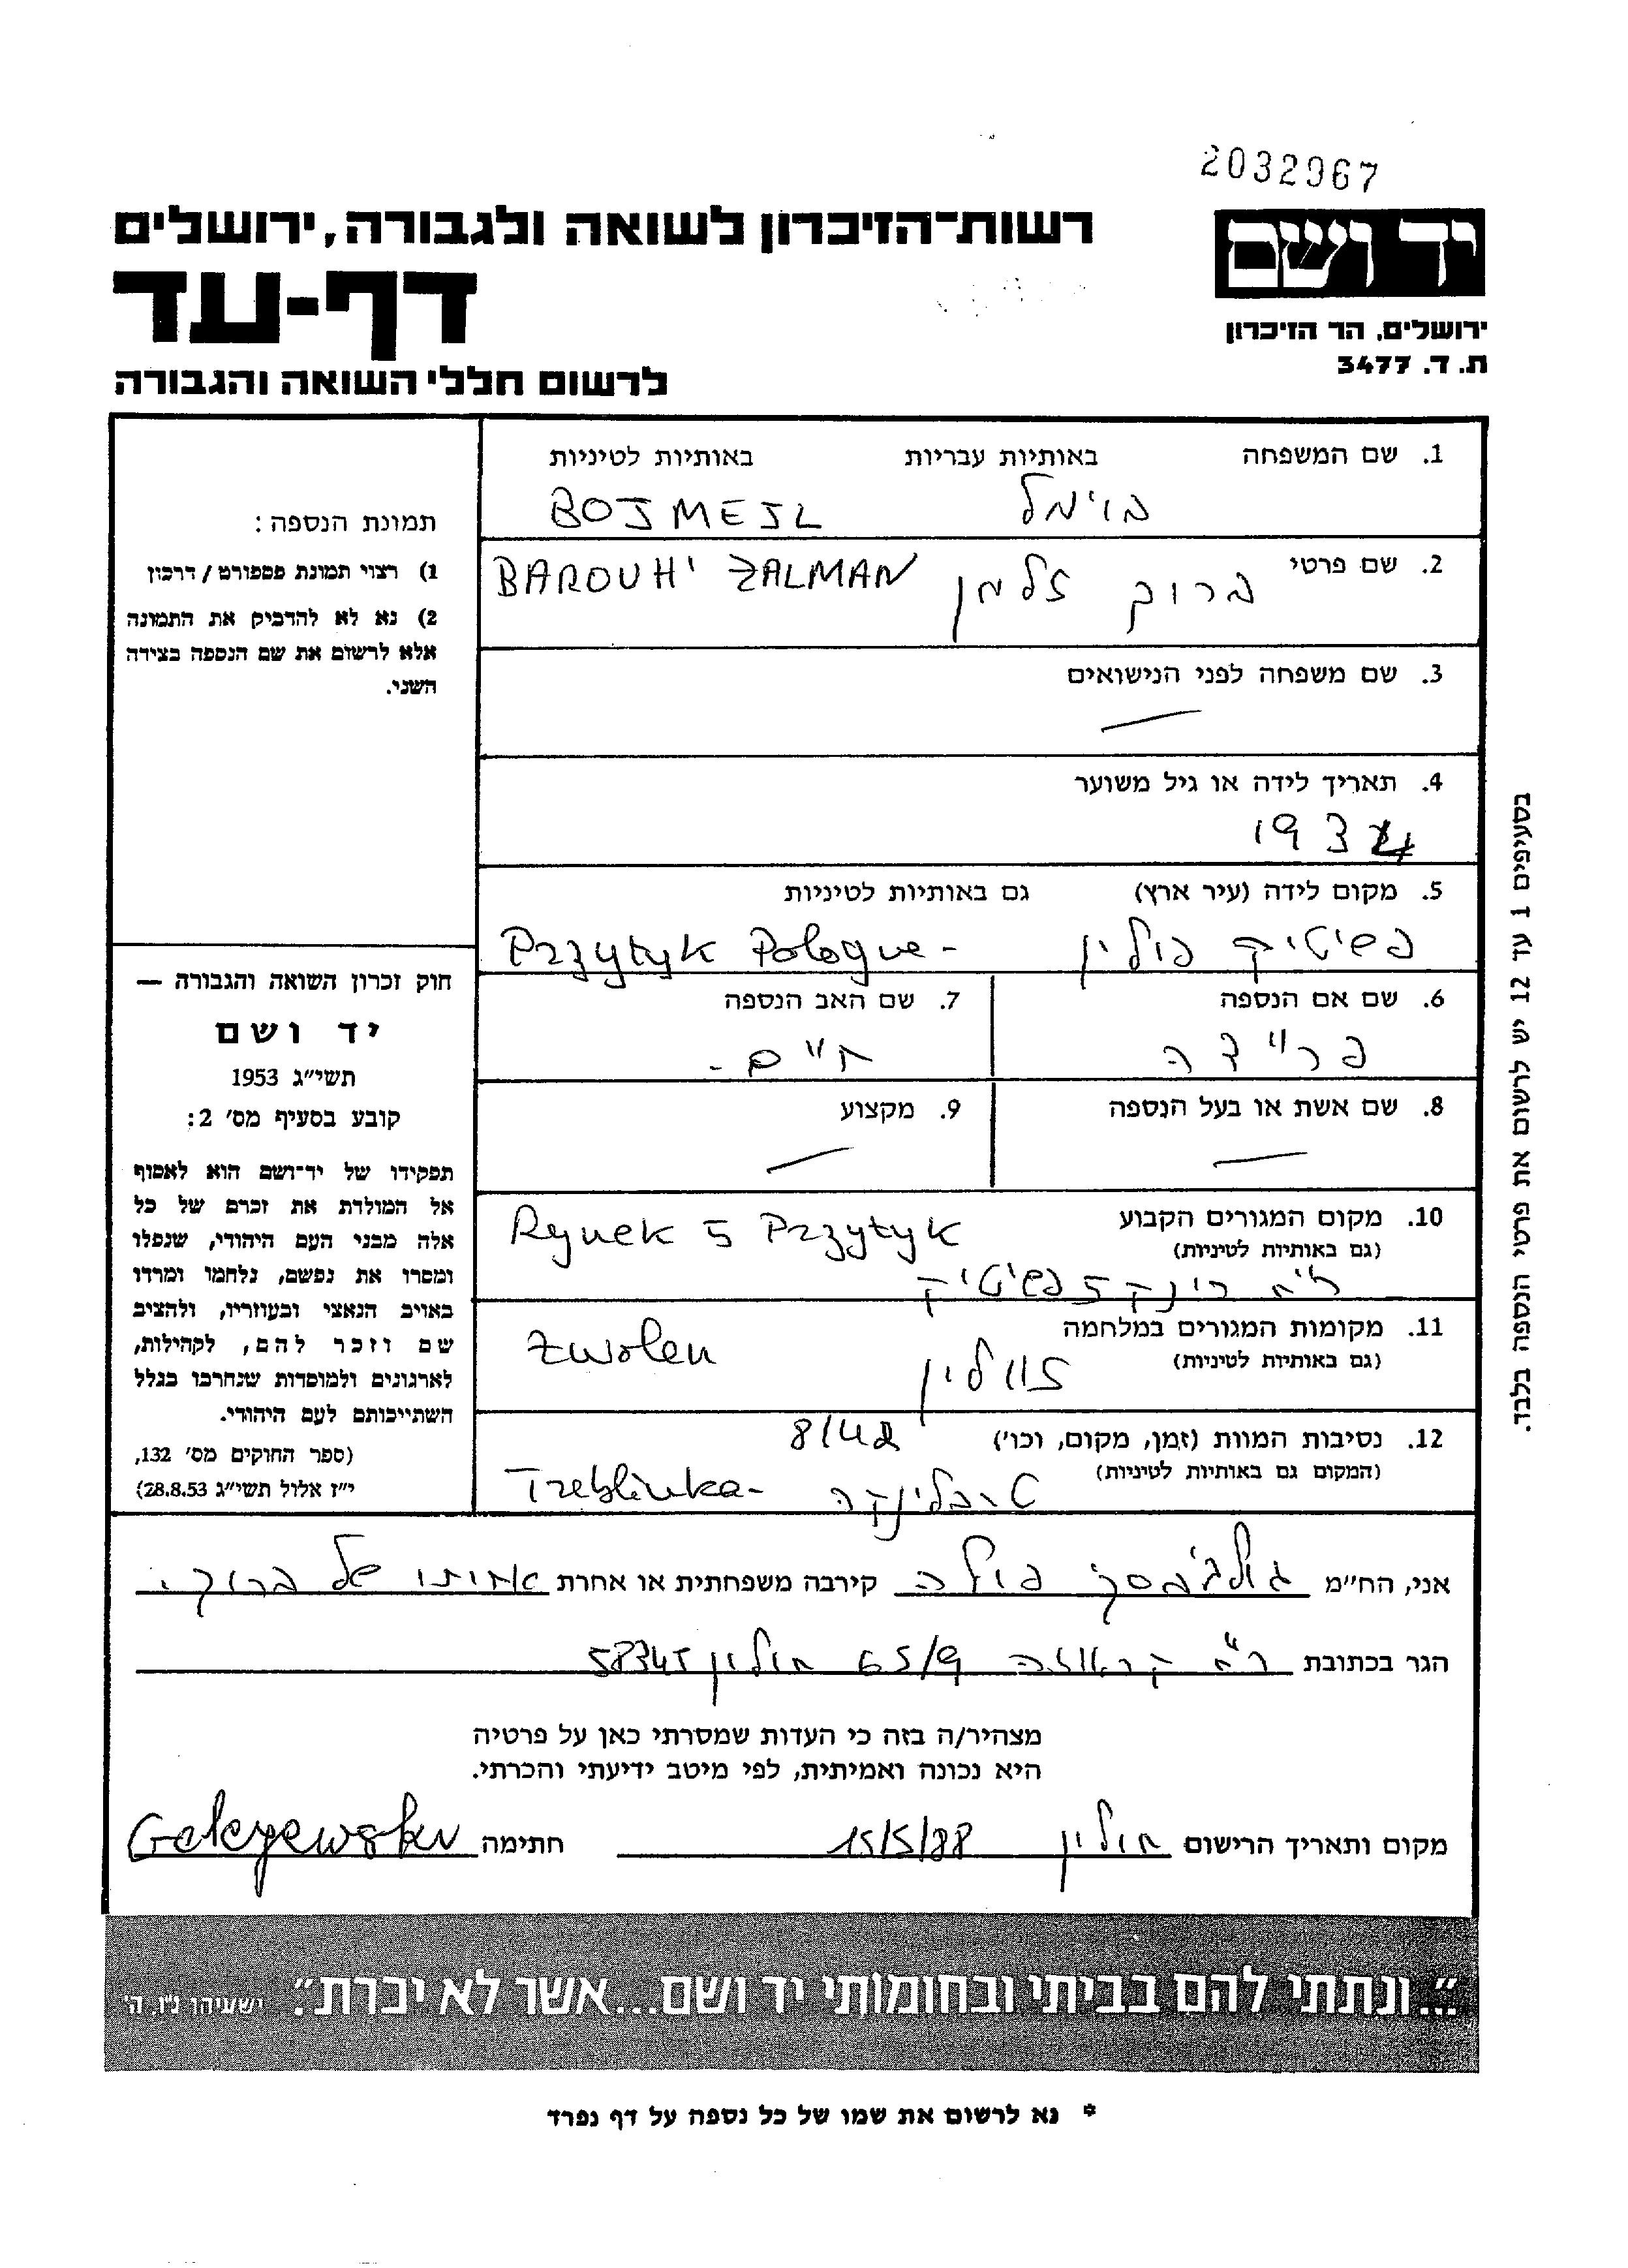 2032967
יד ושם
ירושלים, הר הזיכרון
ת. ד. 3477
רשות־הזיכרון לשואה ולגבורה, ירושלים
דף-עד
לרשום חללי השואה והגבורה
תמונת הנספה:
1) רצוי תמונת פספורט / דרכון
2) נא לא להדביק את התמונה
אלא לרשום את שם הנספה בצידה
השני.
חוק זכרון השואה והגבורה —
יד ושם
תשי״ג 1953
קובע בסעיף מס׳ 2:
תפקידו של יד־ושם הוא לאסוף
אל המולדת את זכרם של כל
אלה מבני העם היהודי, שנפלו
ומסרו את נפשם, נלחמו ומרדו
באויב הנאצי ובעוזריו, ולהציב
שם וזכר להם, לקהילות,
לארגונים ולמוסדות שנחרבו בגלל
השתייכותם לעם היהודי.
(ספר החוקים מס׳ 132,
י״ז אלול תשי״ג 28.8.53)
1. שם המשפחה באותיות עבריות באותיות לטיניות
בוימל BOJMEJL
2. שם פרטי ברוך זלמן BAROUH' ZALMAN
3. שם משפחה לפני הנישואים
—
4. תאריך לידה או גיל משוער
1934
5. מקום לידה (עיר ארץ) גם באותיות לטיניות
פשיטיק פולין Przytyk Pologne -
6. שם אם הנספה 7. שם האב הנספה
פריידה חיים -
8. שם אשת או בעל הנספה 9. מקצוע
— —
10. מקום המגורים הקבוע Rynek 5 Przytyk
(גם באותיות לטיניות)
רינק 5 פשיטיק
11. מקומות המגורים במלחמה Zwolen
(גם באותיות לטיניות) זוולין
12. נסיבות המוות (זמן, מקום, וכו׳) 8/42
(המקום גם באותיות לטיניות) טרבלינקה Treblinka-
בסעיפים 1 עד 12 יש לרשום את פרטי הנספה בלבד.
אני, הח״מ גולצ'בסקי פולה קירבה משפחתית או אחרת אחותו של ברוך.
הגר בכתובת 65/9 חולון 58345
מצהיר/ה בזה כי העדות שמסרתי כאן על פרטיה
היא נכונה ואמיתית, לפי מיטב ידיעתי והכרתי.
מקום ותאריך הרישום חולון 15/5/88 חתימה
״...ונתתי להם בביתי ובחומותי יד ושם...אשר לא יכרת״. ישעיהו נ״ו, ה׳
* נא לרשום את שמו של כל נספה על דף נפרד